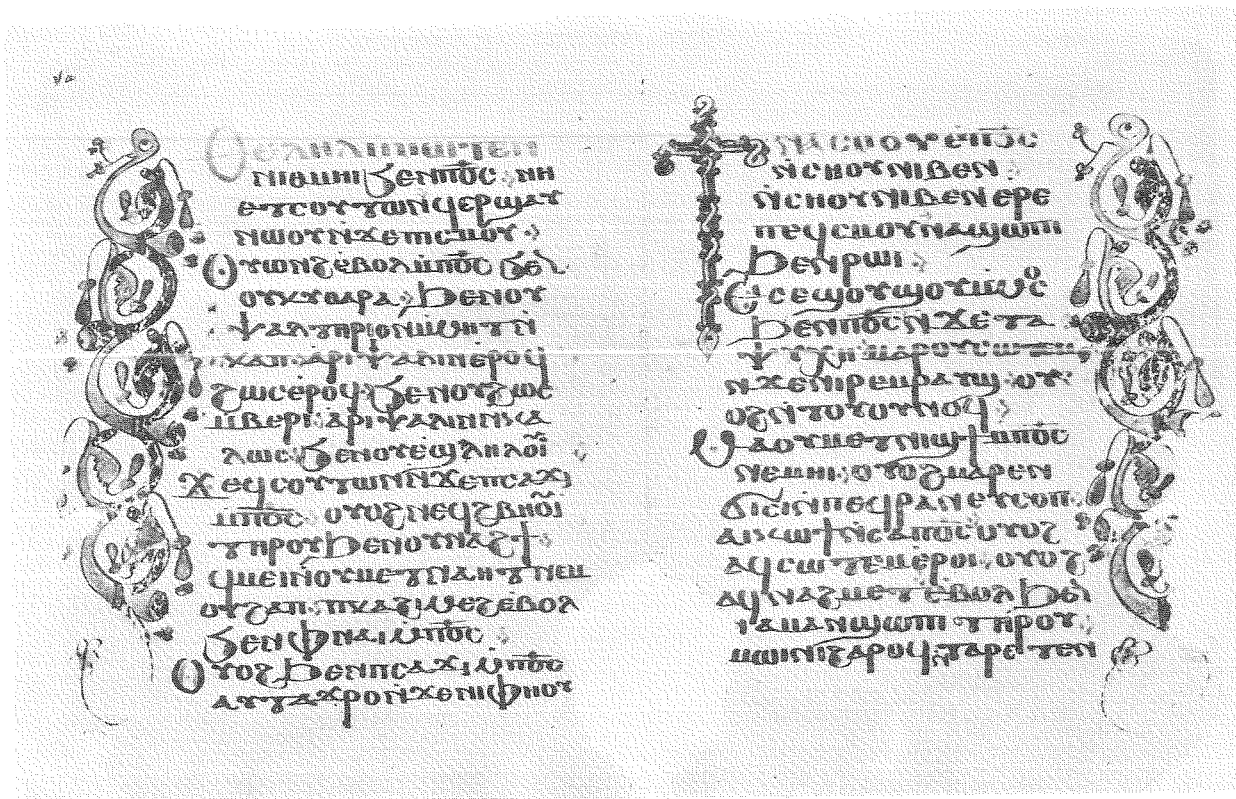 Ⲑⲉⲗⲏⲗ ⲙⲙⲱⲧⲉⲛ
ⲛⲓⲑⲙⲏⲓ ϧⲉⲛ ⲡϭ̅ⲥ̅ : ⲛⲏ
ⲉⲧⲥⲟⲩⲧⲱⲛ ϥⲉⲣϣⲁⲩ
ⲛⲱⲟⲩ ⲛϫⲉ ⲡⲓⲥⲙⲟⲩ :
Ⲟⲩⲱⲛϩ ⲉⲃⲟⲗ ⲙⲡϭ̅ⲥ̅ ϧⲉⲛ
ⲟⲩⲕⲩⲑⲁⲣⲁ : ϧⲉⲛ ⲟⲩ
ⲯⲁⲗⲧⲏⲣⲓⲟⲛ ⲙⲙⲏⲧ ⲛ
ⲕⲁⲡ ⲁⲣⲓⲯⲁⲗⲓⲛ ⲉⲣⲟϥ
ϩⲱⲥ ⲉⲣⲟϥ ϧⲉⲛ ⲟⲩϩⲱⲥ
ⲙⲃⲉⲣⲓ : ⲁⲣⲓⲯⲁⲗⲓⲛ ⲛⲕⲁ
ⲗⲱⲥ ϧⲉⲛ ⲟⲩⲉϣⲗⲏⲗⲟⲩⲓ̈
Ϫⲉ ϥⲥⲟⲩⲧⲱⲛ ⲛϫⲉ ⲡⲥⲁϫⲓ
ⲙⲡϭ̅ⲥ̅ : ⲟⲩⲟϩ ⲛⲉϥϩⲃⲏⲟⲩⲓ̈
ⲧⲏⲣⲟⲩ ϧⲉⲛ ⲟⲩⲛⲁϩϯ
ϥⲙⲉⲓ ⲛⲟⲩⲙⲉⲧⲛⲁⲏⲧ ⲛⲉⲙ
ⲟⲩϩⲁⲡ : ⲡⲕⲁϩⲓ ⲙⲉϩ ⲉⲃⲟⲗ
ϧⲉⲛ ⲫⲛⲁⲓ ⲙⲡϭ̅ⲥ̅ :
Ⲟⲩⲟϩ ϧⲉⲛ ⲡⲥⲁϫⲓ ⲙⲡϭ̅ⲥ̅
ⲁⲩⲧⲁϫⲣⲟ ⲛϫⲉ ⲛⲓⲫⲏⲟⲩⲓ
Ϯⲛⲁⲥⲙⲟⲩ ⲉⲡϭ̅ⲥ̅
ⲛⲥⲏⲟⲩ ⲛⲓⲃⲉⲛ :
ⲛⲥⲏⲟⲩ ⲛⲓⲃⲉⲛ ⲉⲣⲉ
ⲡⲉϥⲥⲙⲟⲩ ⲛⲁϣⲱⲡⲓ
ϧⲉⲛ ⲣⲱⲓ :
Ⲉⲥⲉϣⲟⲩϣⲟⲩ ⲙⲙⲟⲥ
ϧⲉⲛ ⲡϭ̅ⲥ̅ ⲛϫⲉ ⲧⲁ
ⲯⲩⲭⲏ ⲙⲁⲣⲟⲩⲥⲱⲧⲉⲙ
ⲛϫⲉ ⲛⲓⲣⲉⲙⲣⲁⲩϣ : ⲟⲩ
ⲟϩ ⲛⲧⲟⲩⲟⲩⲛⲟϥ :
Ⲙⲁⲟⲩⲙⲉⲧⲛⲓϣϯ ⲙⲡϭ̅ⲥ̅
ⲛⲉⲙⲏⲓ : ⲟⲩⲟϩ ⲙⲁⲣⲉⲛ
ϭⲓⲥⲓ ⲙⲡⲉϥⲣⲁⲛ ⲉⲩⲥⲟⲡ
ⲁⲓⲕⲱϯ ⲛⲥⲁ ⲡϭ̅ⲥ̅ ⲟⲩⲟϩ
ⲁϥⲥⲱⲧⲉⲙ ⲉⲣⲟⲓ : ⲟⲩⲟϩ
ⲁϥⲛⲁϩⲙⲉⲧ ⲉⲃⲟⲗ ϧⲉⲛ
ⲛⲁⲙⲁⲛϣⲱⲡⲓ ⲧⲏⲣⲟⲩ
ⲙⲱⲓⲛⲓ ϩⲁⲣⲟϥ ϩⲓⲛⲁ ⲛⲧⲉⲧⲉⲛ